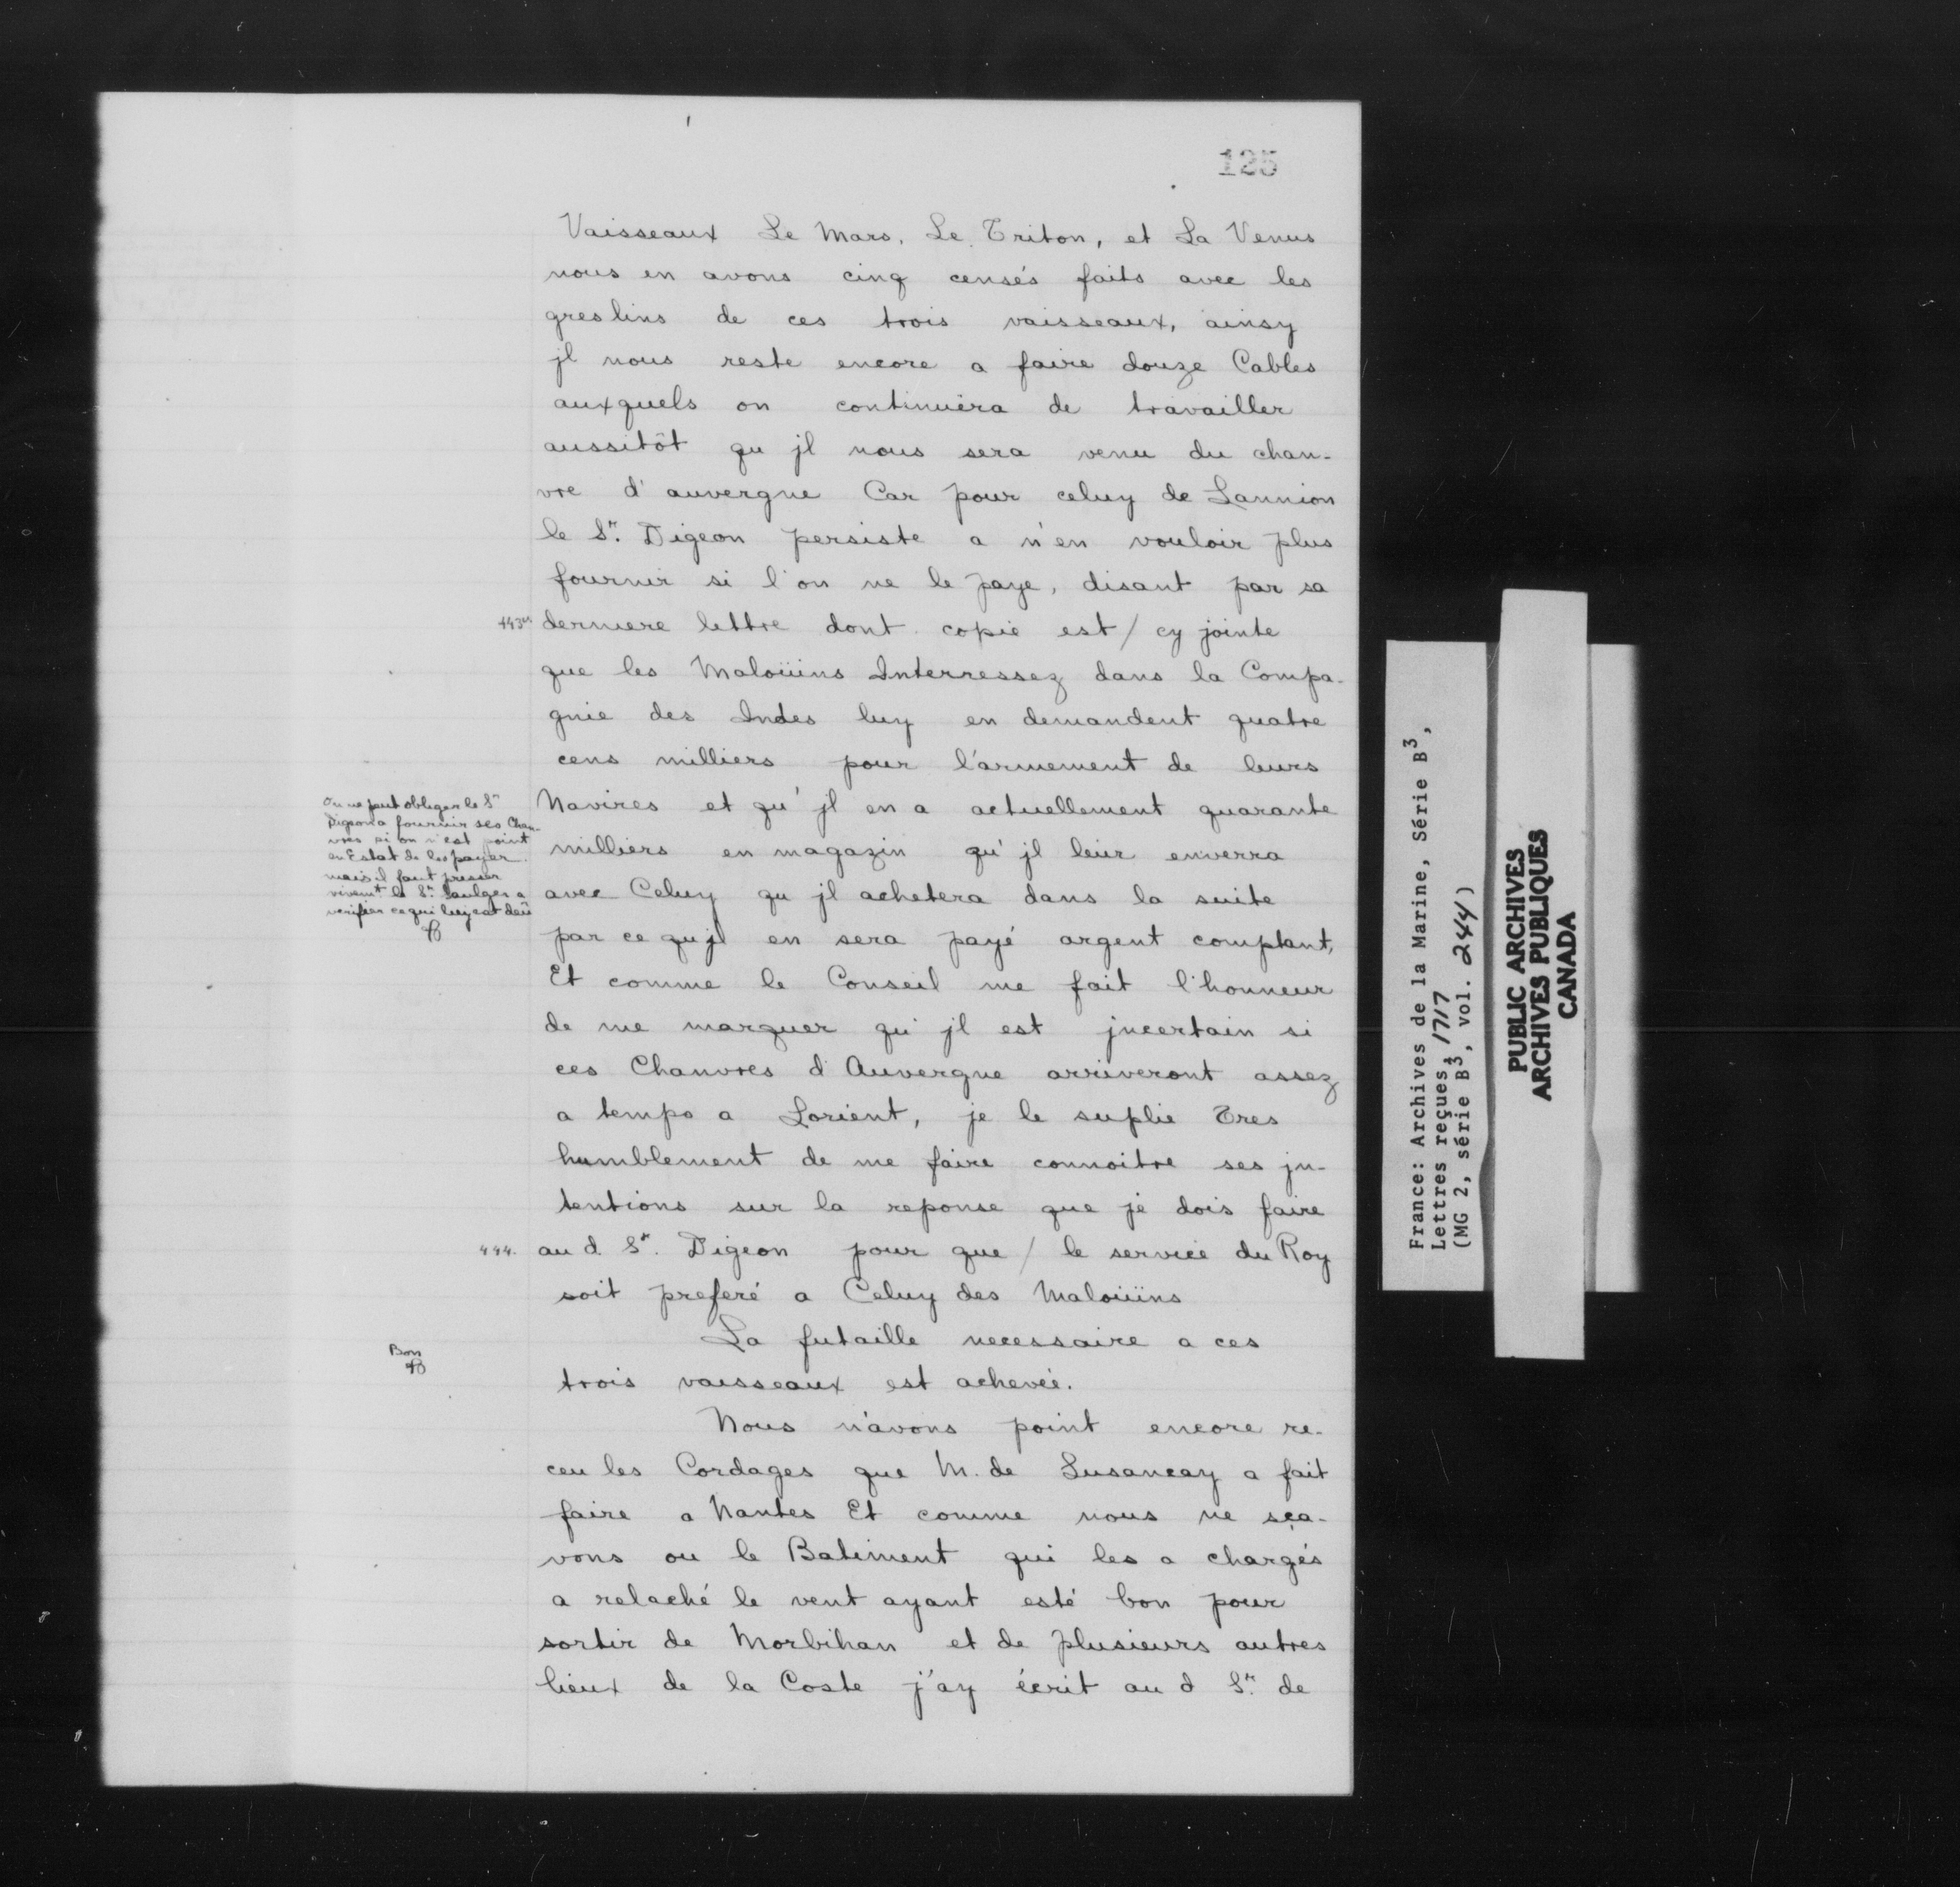 125
Vaisseaux Le Mars, Le Triton, et La Venus
nous en avons cinq censés faits avec les
greslins de ces trois vaisseaux, ainsy
jl nous reste encore a faire douze Cables
auxquels on continuera de travailler
aussitôt qu jl nous sera venu du chan-
vre d'auvergne Car pour celuy de Lannion
le Sr. Digeon persiste a n'en vouloir plus
fournir si l'on ne le paye, disant par sa
443vo derniere lettre dont copie est / cy jointe
que les Maloüins Interressez dans la Compa-
gnie des Indes luy en demandent quatre
cens milliers pour l'armement de leurs
Navires et qu'jl en a actuellement quarante
milliers en magazin qu'jl leur enverra
avec Celuy qu jl achetera dans la suite
par ce qu jl en sera payé argent comptant,
Et comme le Conseil me fait l'honneur
de me marquer qu'jl est jncertain si
ces Chanvres d'Auvergne arriveront assez
a temps a Lorient, je le suplie Tres
humblement de me faire connoitre ses jn-
tentions sur la reponse que je dois faire
444. au d. Sr. Digeon pour que / le service du Roy
soit preferé a Celuy des Maloüins
La futaille necessaire a ces
trois vaisseaux est achevée.
Nous n'avons point encore re-
ceu les Cordages que M. de Lusancay a fait
faire a Nantes Et comme nous ne sça-
vons ou le Batiment qui les a chargés
a relaché le vent ayant esté bon pour
sortir de Morbihan et de plusieurs autres
lieux de la Coste j'ay écrit au d Sr. de
On ne peut obliger le Sr
Digeon a fournir ses Chan-
vres si on n'est point
en Estat de les payer.
mais il faut presser
vivemt le Sr. Laulger a
verifier ce qui luy est deü
Bon
France: Archives de la Marine, Série B3,
Lettres reçues, 1717
(MG 2, série B3, vol. 244)
PUBLIC ARCHIVES
ARCHIVES PUBLIQUES
CANADA